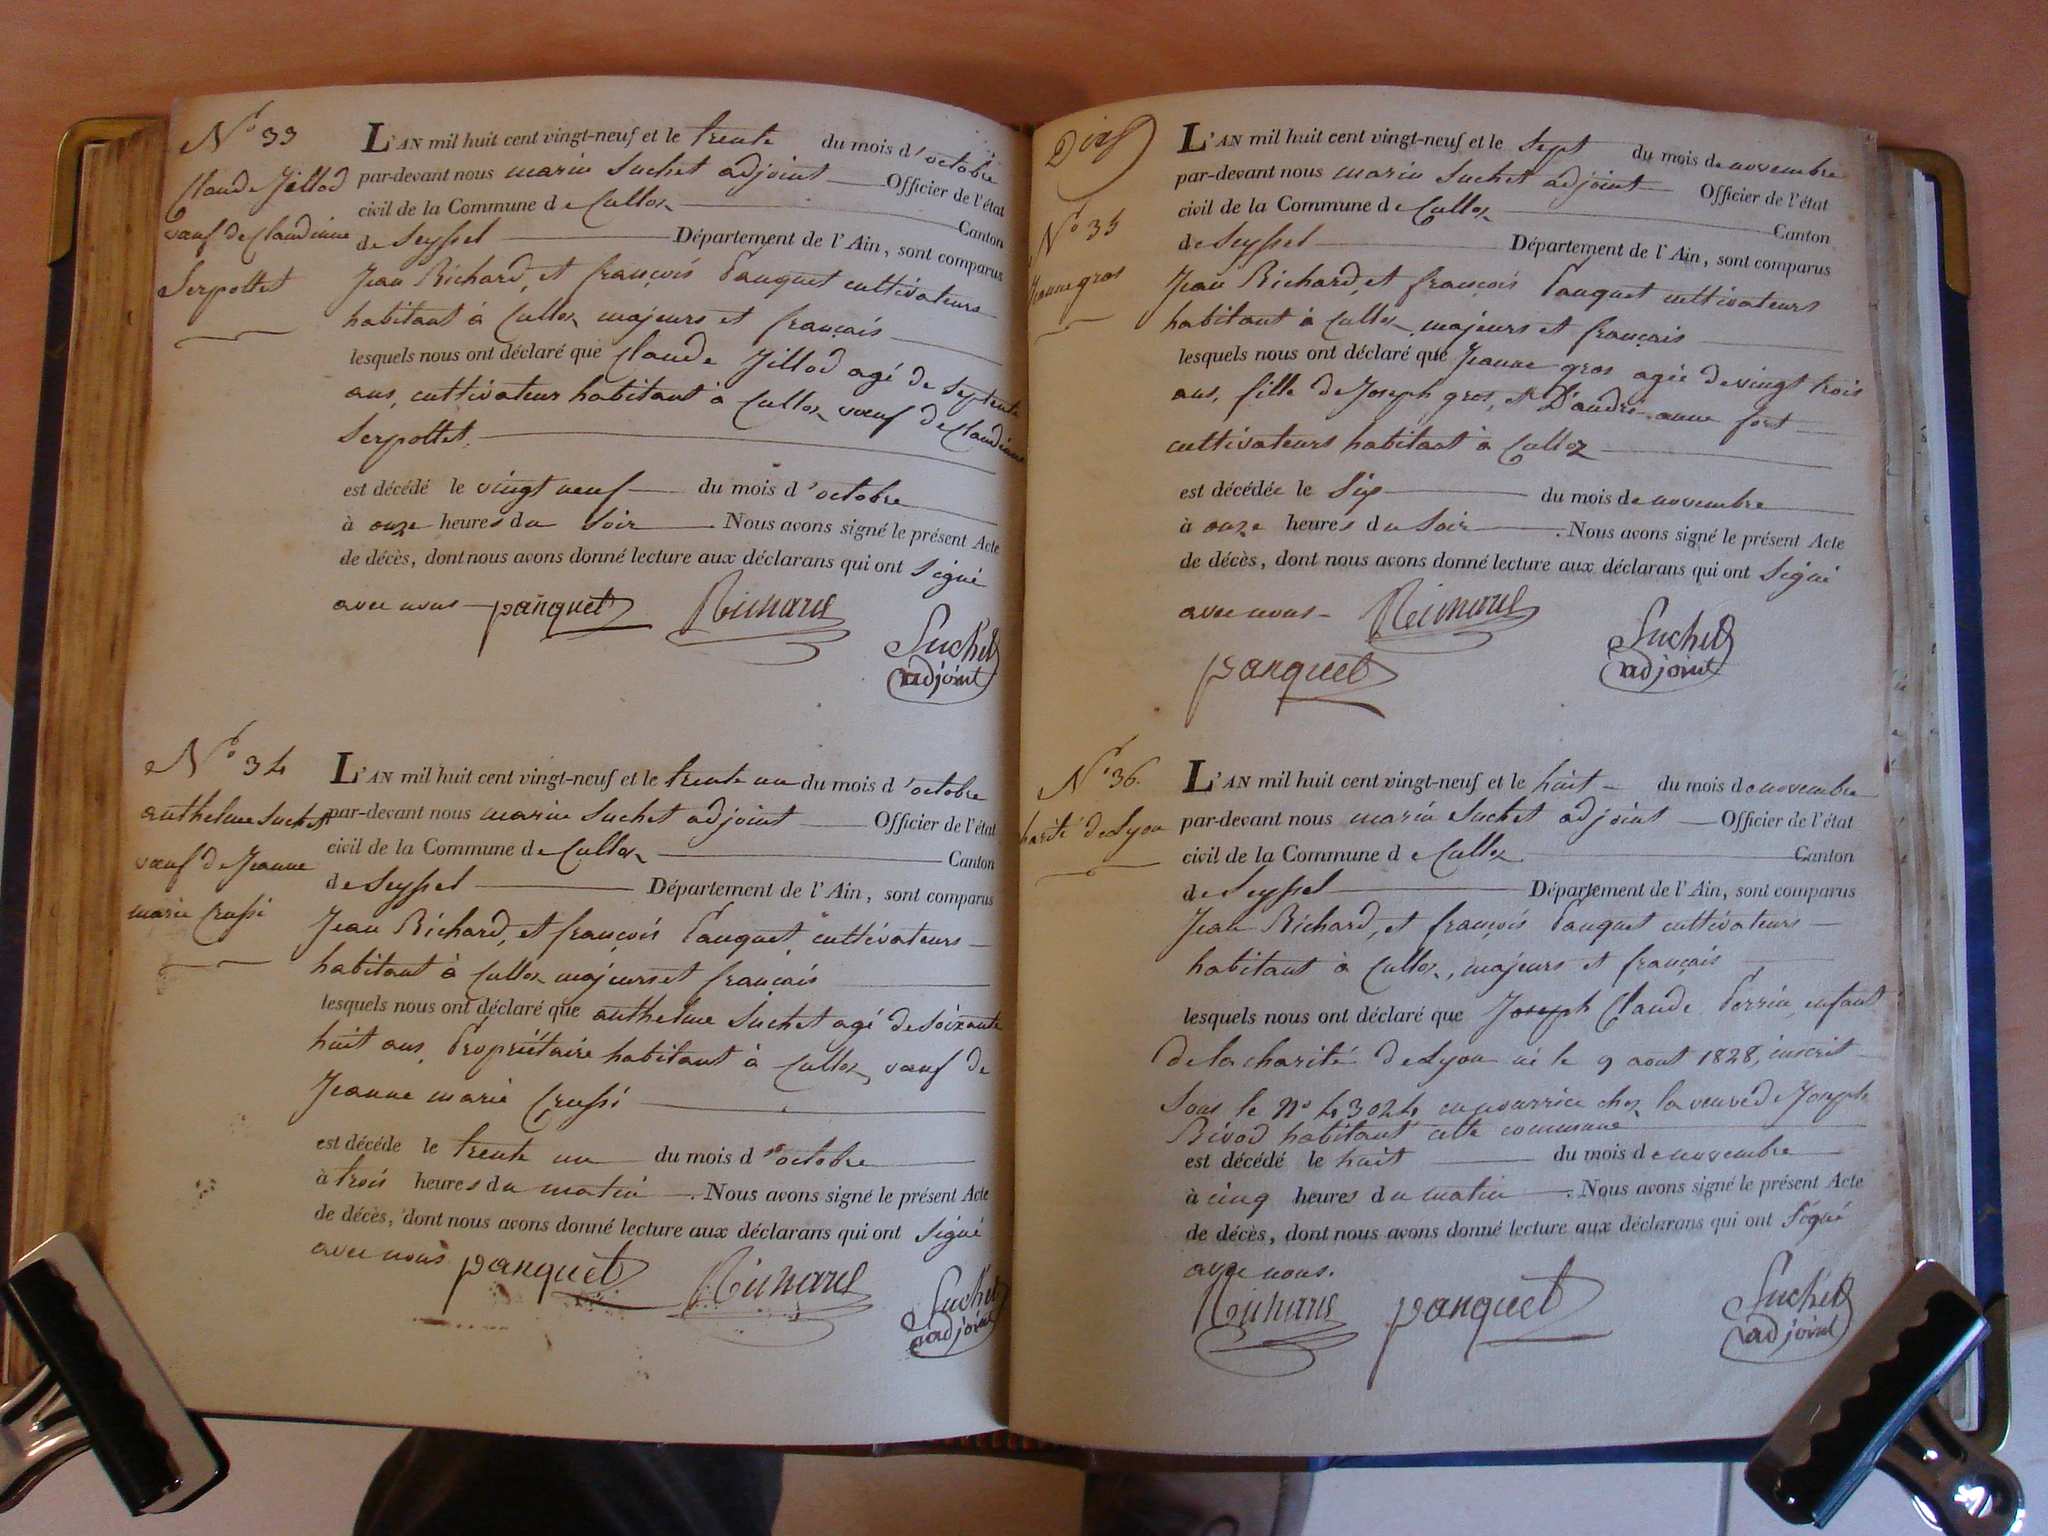 N° 33
Claude Jillod
vœuf de Claudinne
Serpollet
L'AN mil huit cent vingt-neuf et le trente du mois d'octobre
par-devant nous marin Suchet adjoint Officier de l'état
civil de la Commune de Culloz Canton
de Seyssel Département de l'Ain, sont comparus
Jean Richard, et françois Pauquet cultivateurs
habitant à Culloz majeurs et français
lesquels nous ont déclaré que Claude Jillod agé de septente
ans, cultivateur habitant à Culloz vœuf de Claudinne
Serpollet.
est décédé le vingt neuf du mois d'octobre
à onze heures du soir. Nous avons signé le présent Acte
de décès, dont nous avons donné lecture aux déclarans qui ont signé
avec nous panquet Richard
Suchet
adjoint
N° 34
anthelme Suchet
vœuf de Jeanne
marie Crussi
L'AN mil huit cent vingt-neuf et le trente un du mois d'octobre
par-devant nous marin Suchet adjoint Officier de l'état
civil de la Commune de Culloz Canton
de Seyssel Département de l'Ain, sont comparus
Jean Richard, et françois Pauquet cultivateurs
habitant à Culloz majeurs et français
lesquels nous ont déclaré que anthelme Suchet agé de soixante
huit ans, Propriétaire habitant à Culloz, vœuf de
Jeanne marie Crussi
est décéde le trente un du mois d'octobre
à trois heures du matin. Nous avons signé le présent Acte
de décès, dont nous avons donné lecture aux déclarans qui ont signé
avec nous panquet Richard
Suchet
adjoint
N° 35
Jeanne gros
L'AN mil huit cent vingt-neuf et le sept du mois de novembre
par-devant nous marin Suchet adjoint Officier de l'état
civil de la Commune de Culloz Canton
de Seyssel Département de l'Ain, sont comparus
Jean Richard, et françois Pauquet cultivateurs
habitant à Culloz, majeurs et français
lesquels nous ont déclaré que Jeanne gros agée de vingt trois
ans, fille de Joseph gros, et D'andré anne fort
cultivateurs habitant à Culloz
est décédée le Six du mois de novembre
à onze heures du Soir. Nous avons signé le présent Acte
de décès, dont nous avons donné lecture aux déclarans qui ont Signé
avec nous Richard
Suchet
panquet adjoint
N° 36.
harité de Lyon
L'AN mil huit cent vingt-neuf et le huit du mois de novembre
par-devant nous marin Suchet adjoint Officier de l'état
civil de la Commune de Culloz Canton
de Seyssel Département de l'Ain, sont comparus
Jean Richard, et françois Pauquet cultivateurs
habitant à Culloz, majeurs et français
lesquels nous ont déclaré que Joseph Claude Perrin, enfant
de la charité de Lyon né le 9 aout 1828, inscrit
Sous le n° 43024 en nourrice chez la veuve de Joseph
Rivod habitant cette commune
est décédé le huit du mois de novembre
à cinq heures du matin. Nous avons signé le présent Acte
de décès, dont nous avons donné lecture aux déclarans qui ont Signé
avec nous.
Richard panquet Suchet
adjoint